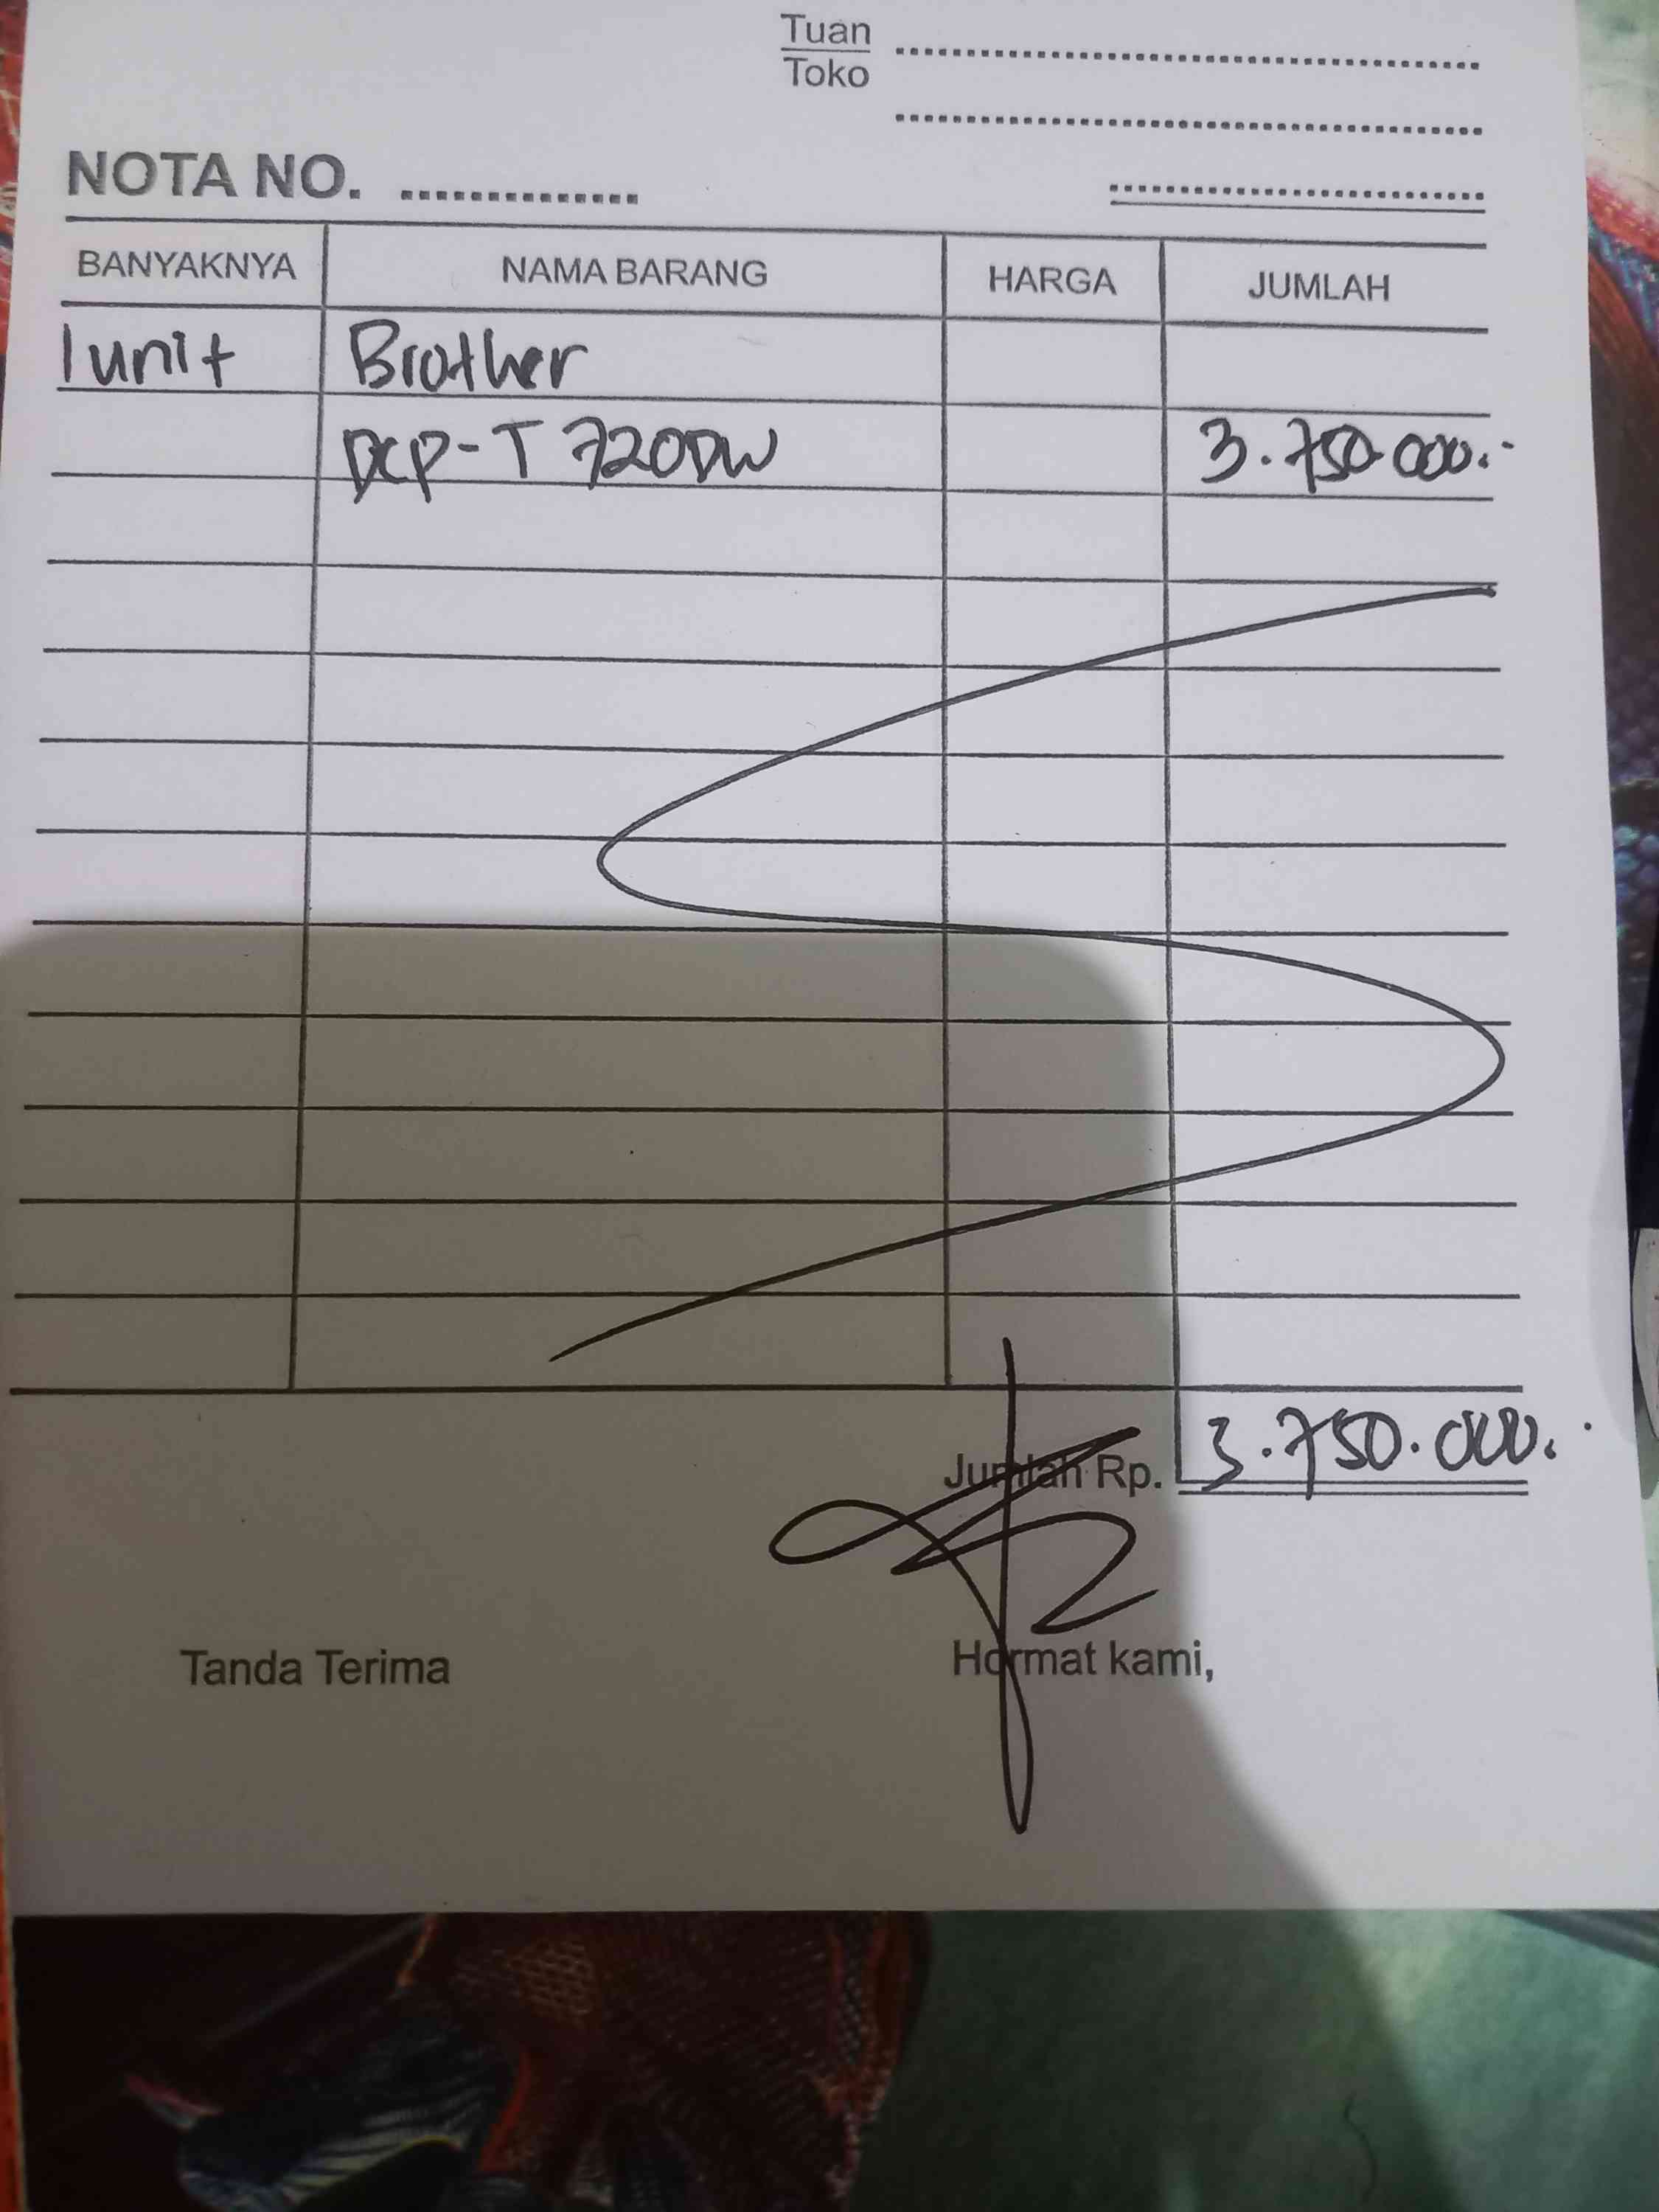 Tuan
Toko
NOTA NO.
BANYAKNYA NAMA BARANG HARGA JUMLAH
1 unit Brother
DCP-T 720DW 3.750.000.-
Jumlah Rp. 3.750.000.-
Tanda Terima Hormat kami,